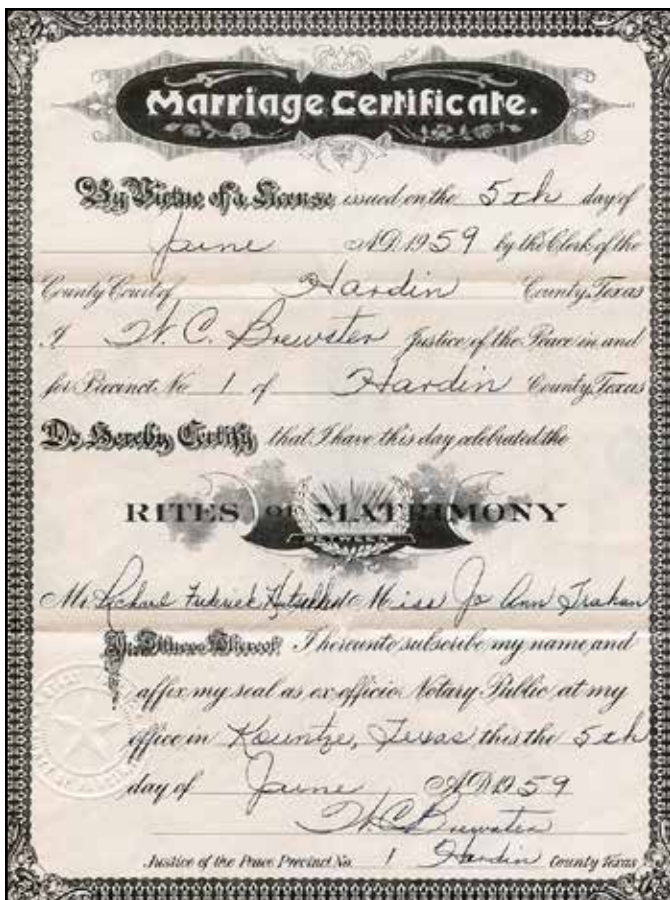 Marriage Certificate.
By Virtue of a License issued on the 5th day of
June A.D. 1959 by the Clerk of the
County Court of Hardin County, Texas
I W. C. Brewster Justice of the Peace in and
for Precinct No 1 of Hardin County, Texas
Do Hereby Certify that I have this day celebrated the
RITES OF MATRIMONY
BETWEEN
Mr. Richard Frederick and Miss Jo Ann Trahan
In Witness Whereof I hereunto subscribe my name and
affix my seal as ex-officio Notary Public, at my
office in Kountze, Texas this the 5th
day of June A.D. 1959
W. C. Brewster
Justice of the Peace Precinct No. 1 Hardin County Texas